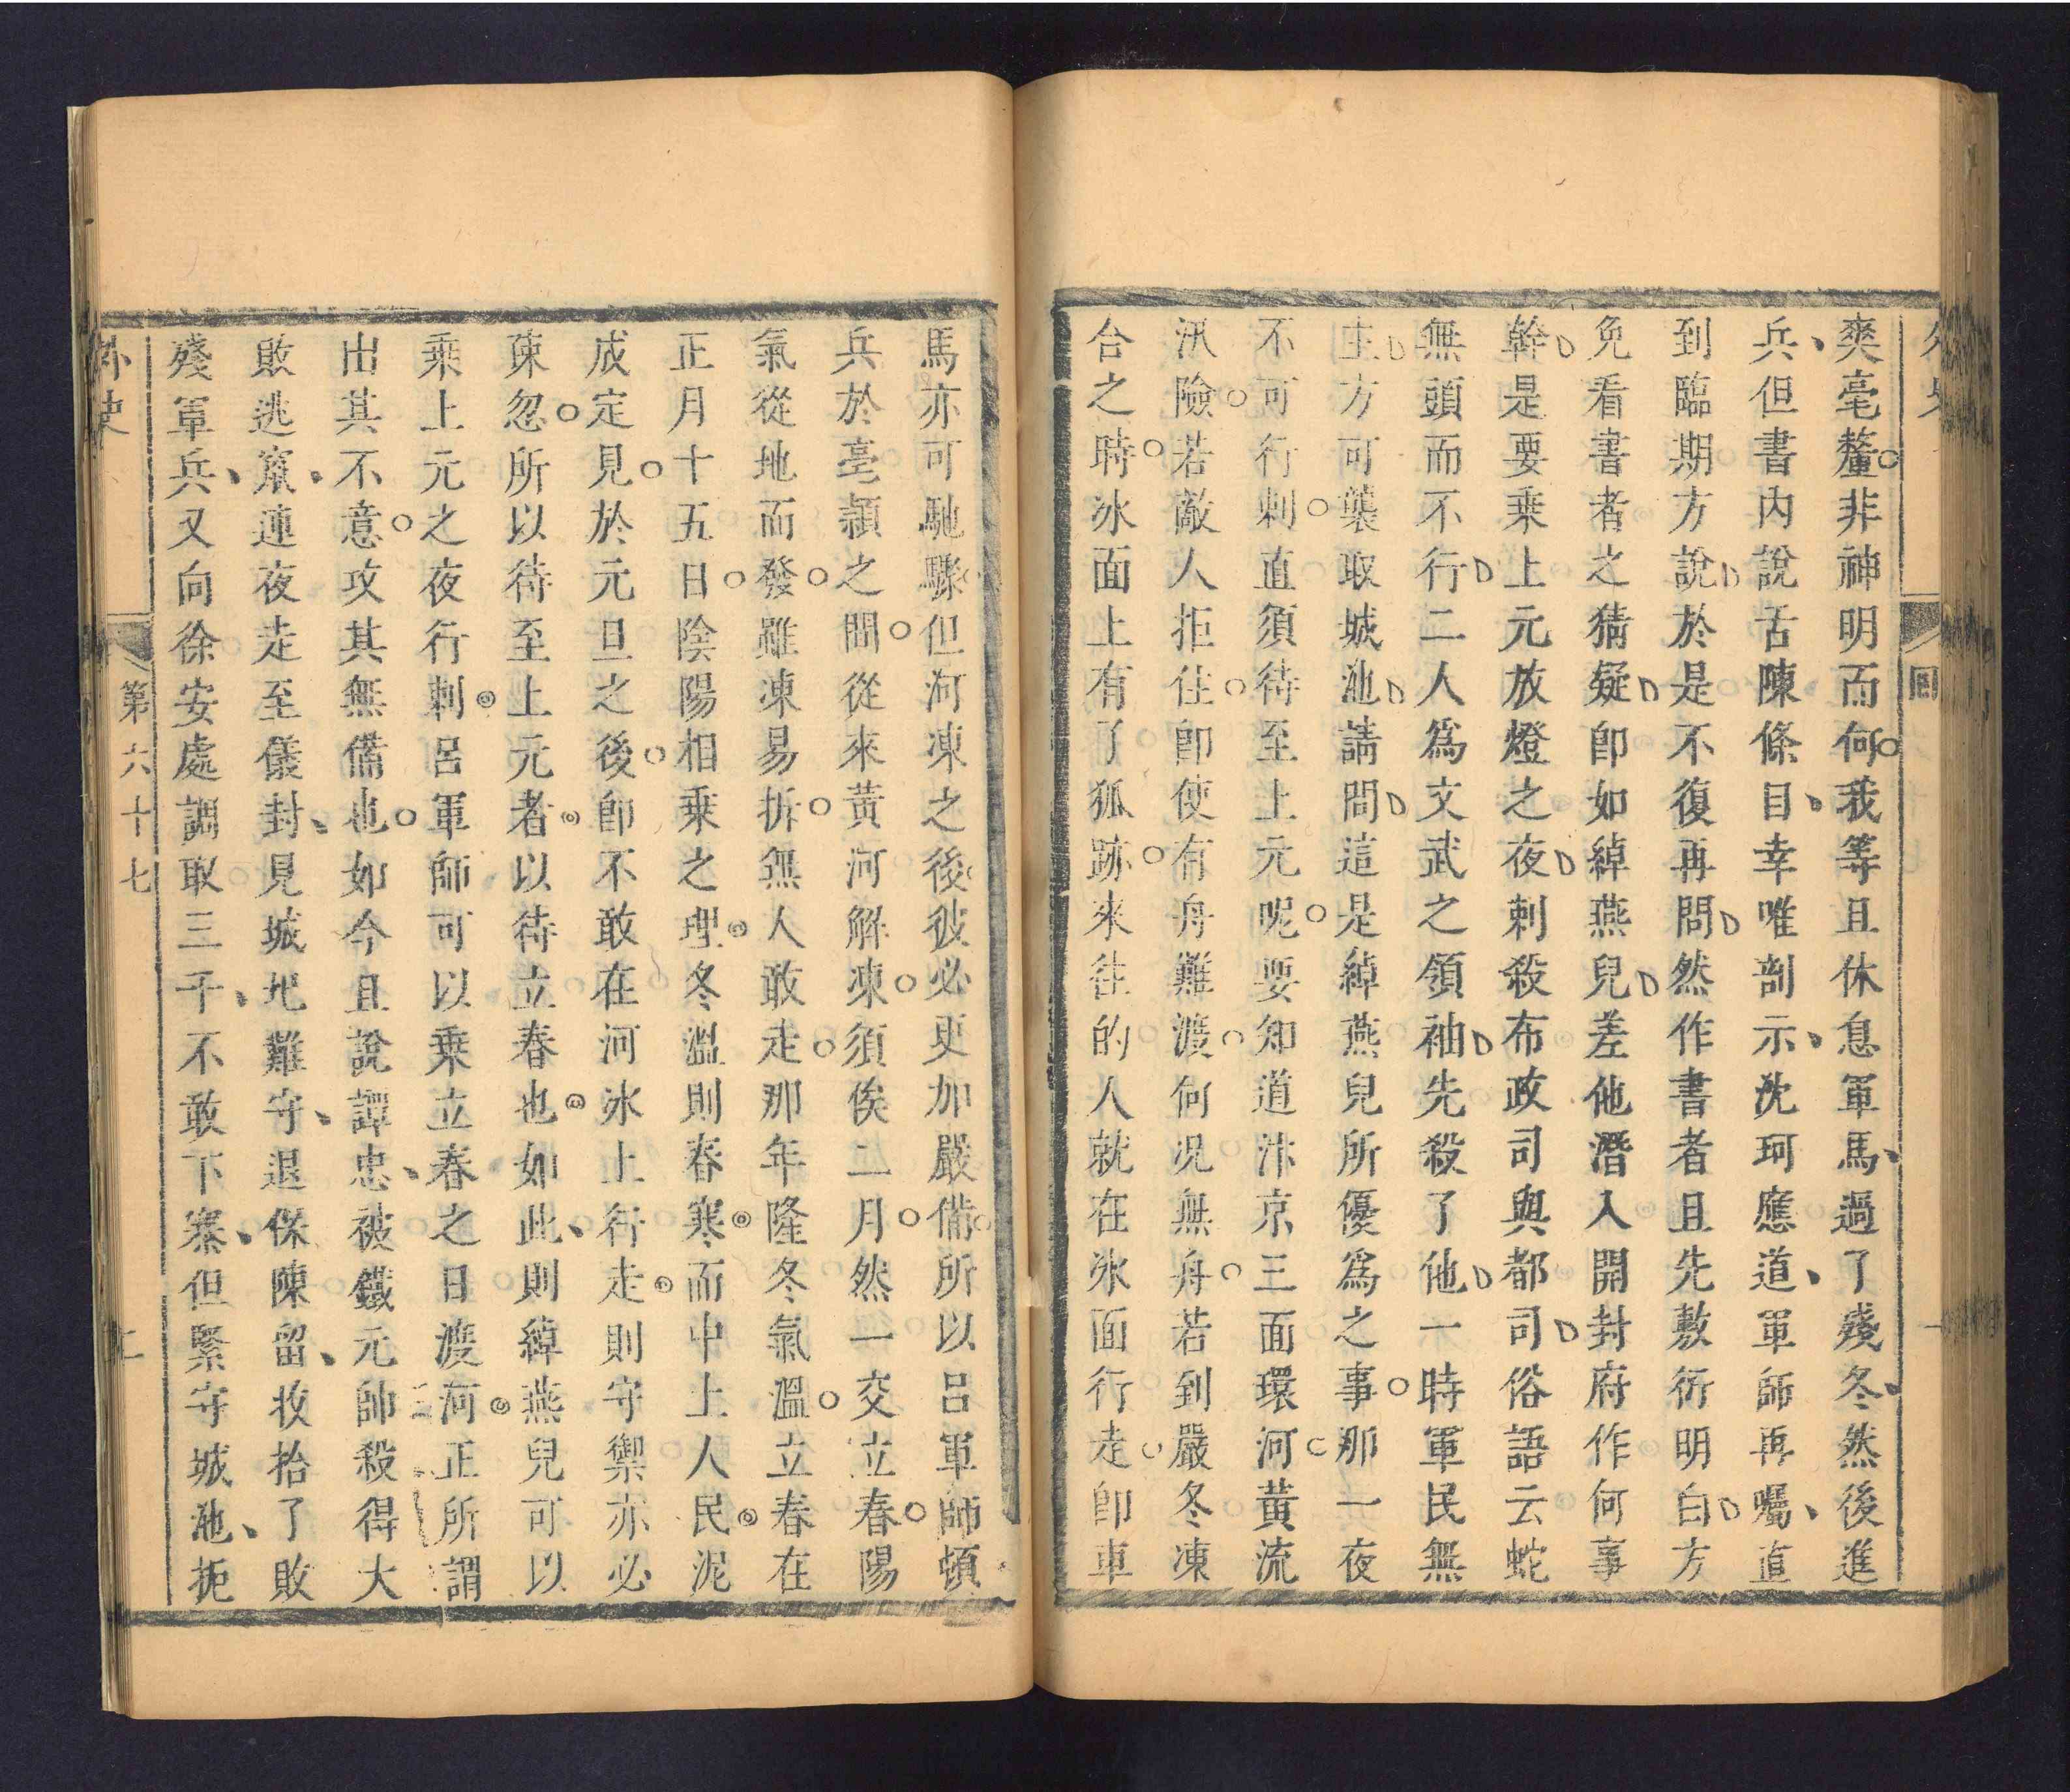 爽毫釐非神明而何我等且休息軍馬過了殘冬然後進
兵但書內說舌陳條目幸唯剖示沈珂應道軍師再囑直
到臨期方說於是不復再問然作書者且先敷衍明白方
免看書者之猜疑卽如綽燕兒差他潛入開封府作何事
幹是要乘上元放燈之夜刺殺布政司與都司俗語云蛇
無頭而不行二人爲文武之領袖先殺了他一時軍民無
主方可襲取城池請問這是綽燕兒所優爲之事那一夜
不可行刺直須待至上元呢要知道汴京三面環河黃流
汛險若敵人拒住卽使有舟難渡何况無舟若到嚴冬凍
合之時冰面上有了狐跡來往的人就在氷面行走卽車
馬亦可馳驟但河凍之後彼必更加嚴備所以呂軍師頓
兵於亳潁之間從來黃河解凍須俟二月然一交立春陽
氣從地而發雖凍易拆無人敢走那年隆冬氣溫立春在
正月十五日陰陽相乘之理冬溫則春寒而中土人民泥
成定見於元旦之後卽不敢在河冰上行走則守禦亦必
疎忽所以待至上元者以待立春也如此則綽燕兒可以
乘上元之夜行刺呂軍師可以乘立春之日渡河正所謂
出其不意攻其無備也如今且說譚忠被鐵元帥殺得大
敗逃竄連夜走至儀封見城圯難守退保陳留收拾了敗
殘軍兵又向徐安處調取三千不敢下寨但緊守城池扼
外史
第六十七